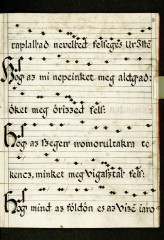 traplaltad nevelted felseges Ur Iste
Hog az mi nepeinket meg aldgad:
őket meg őrizzed fels:
Hog az szegeñ nomorultakra te
kencz, minket meg vigasztal fels:
Hog mind az főldőn es az vize iaro